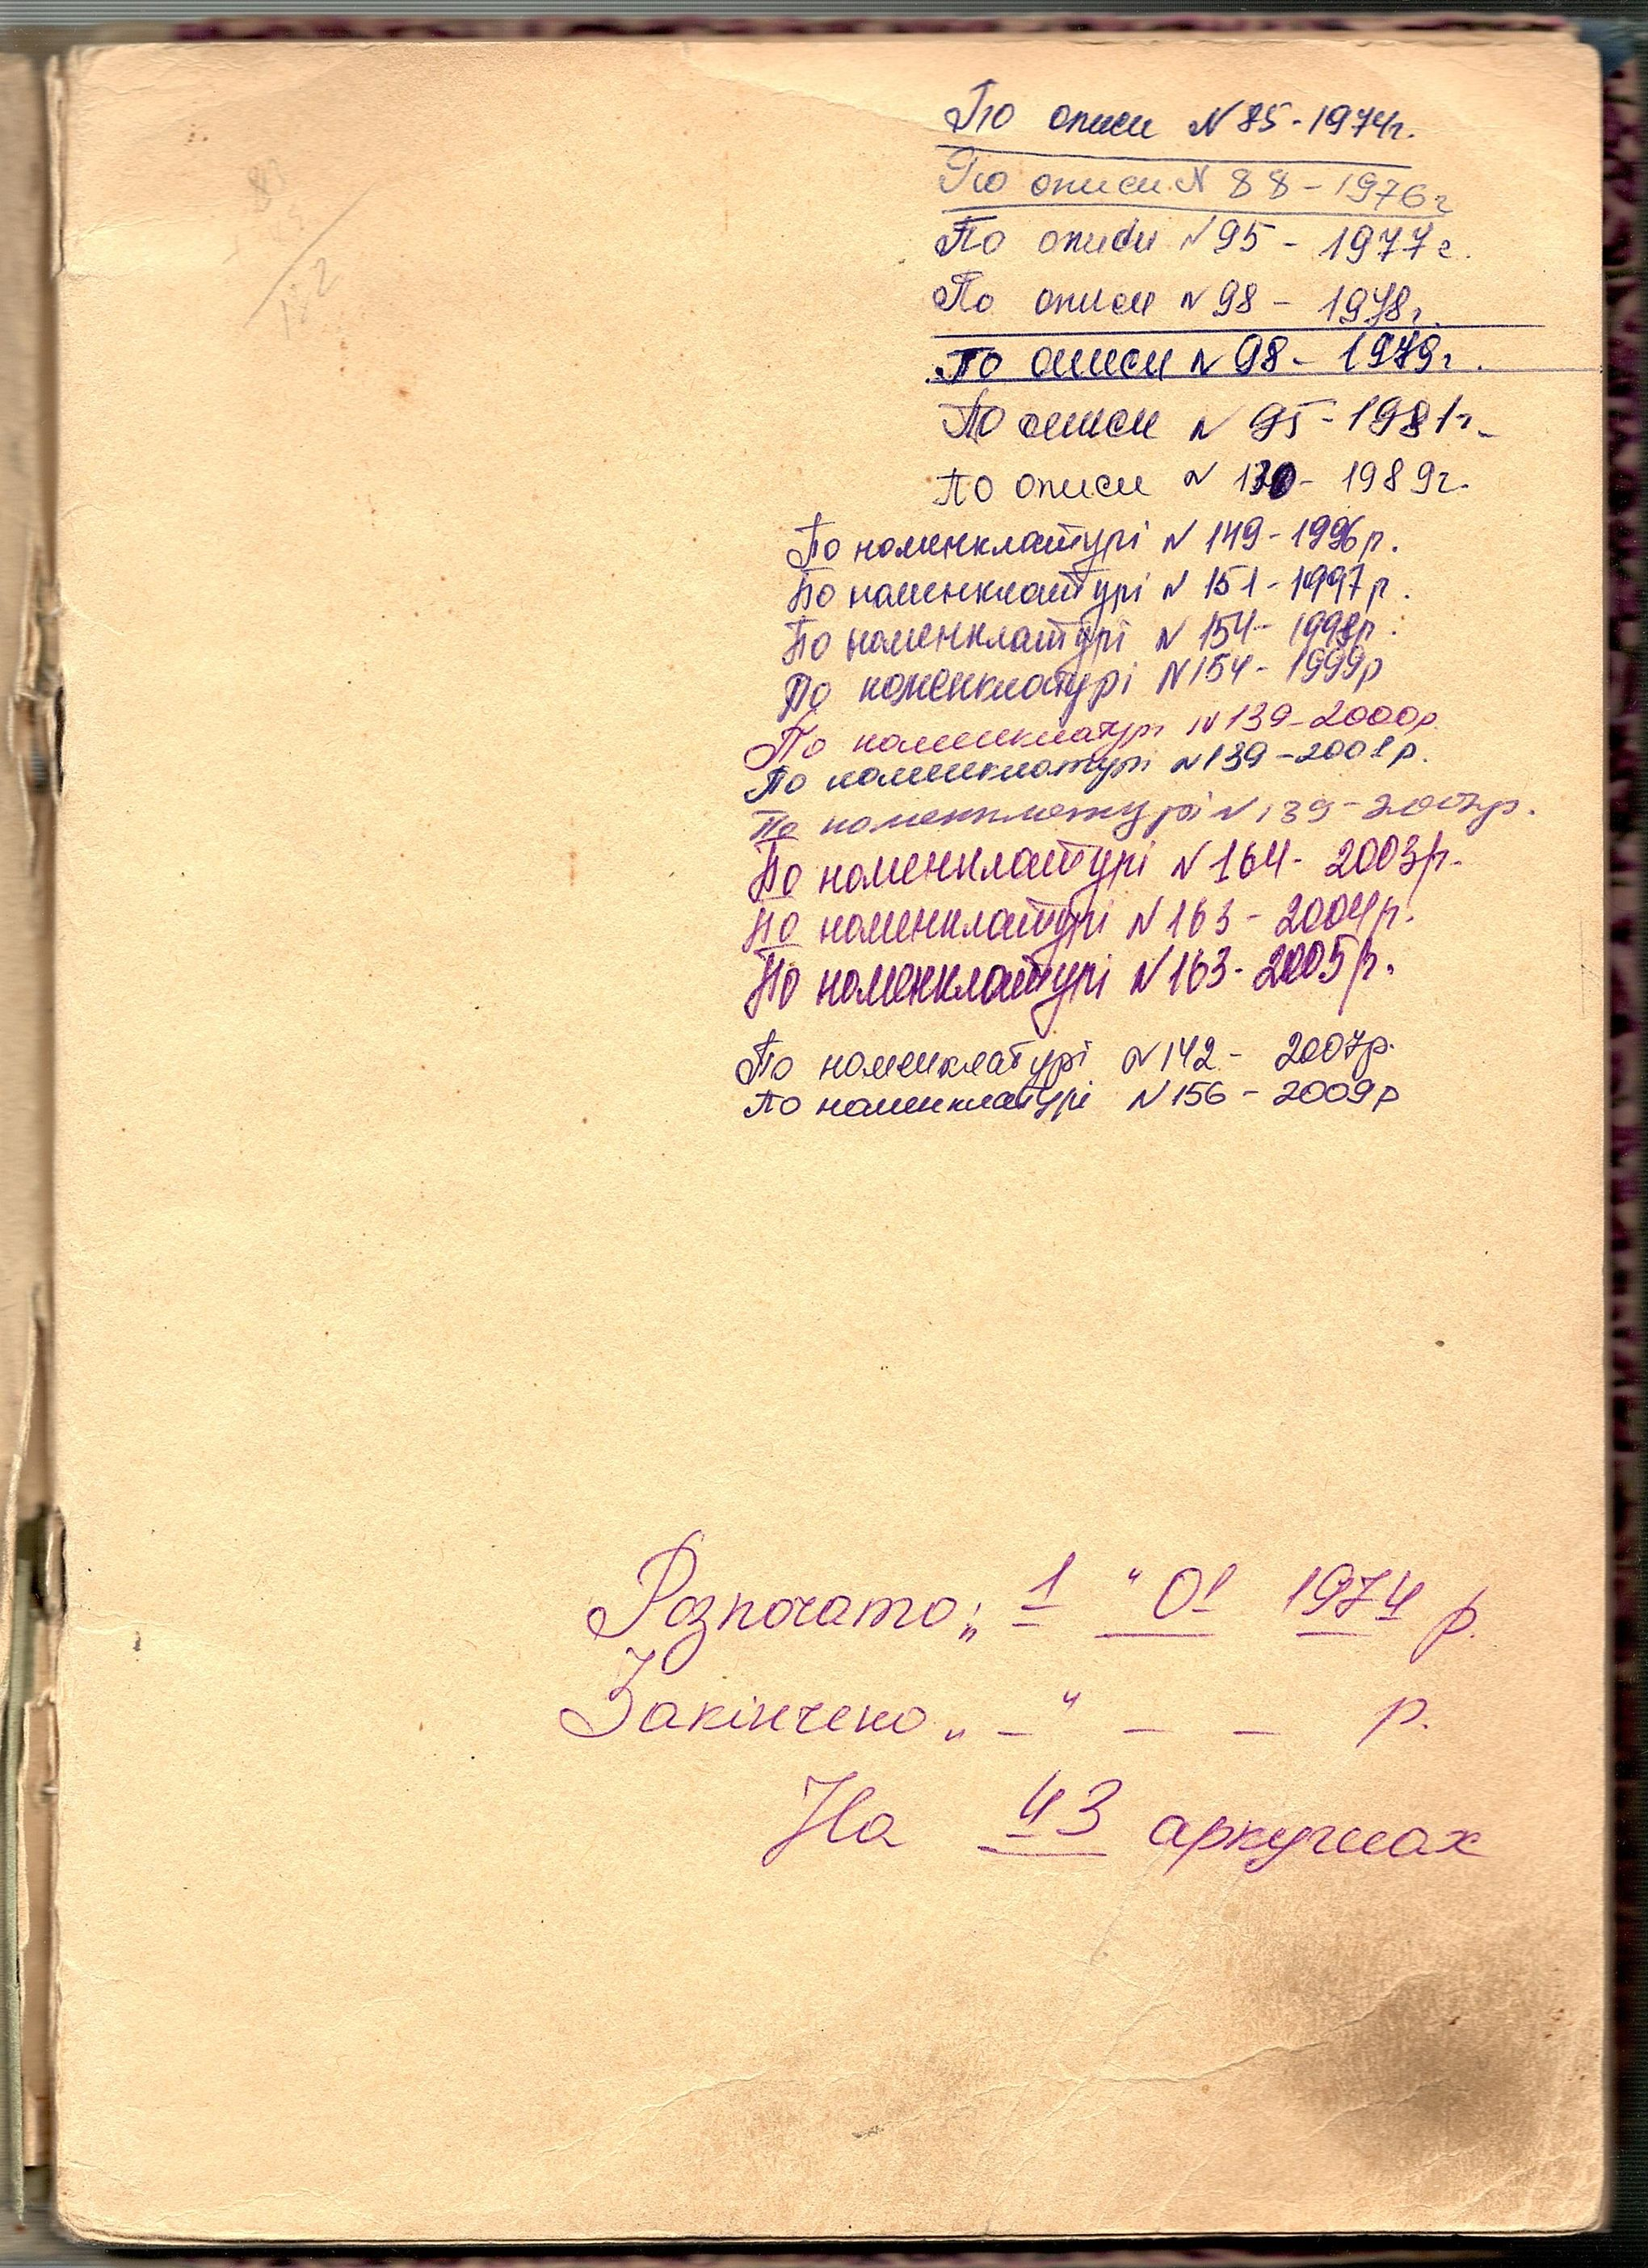 По описи N 85 - 1974г.
По описи N 88 - 1976г
По описи N 95 - 1977г.
По описи N 98 - 1978г.
По описи N 98 - 1979г.
По описи N 95 - 1981г.
По описи N 130 - 1989г.
По номенклатурі N 149 - 1996р.
По номенклатурі N 151 - 1997р.
По номенклатурі N 154 - 1998р.
По номенклатурі N 154 - 1999р
По номенклатурі N 139 - 2000р.
По номенклатурі N 139 - 2001р.
По номенклатурі N 139 - 2002р.
По номенклатурі N 164 - 2003р.
По номенклатурі N 163 - 2004р.
По номенклатурі N 163 - 2005р.
По номенклатурі N 142 - 2007р.
По номенклатурі N 156 - 2009р
Розпочато: „ 1 “ 01 1974 р.
Закінчено „ – “ – – р.
На 43 аркушах